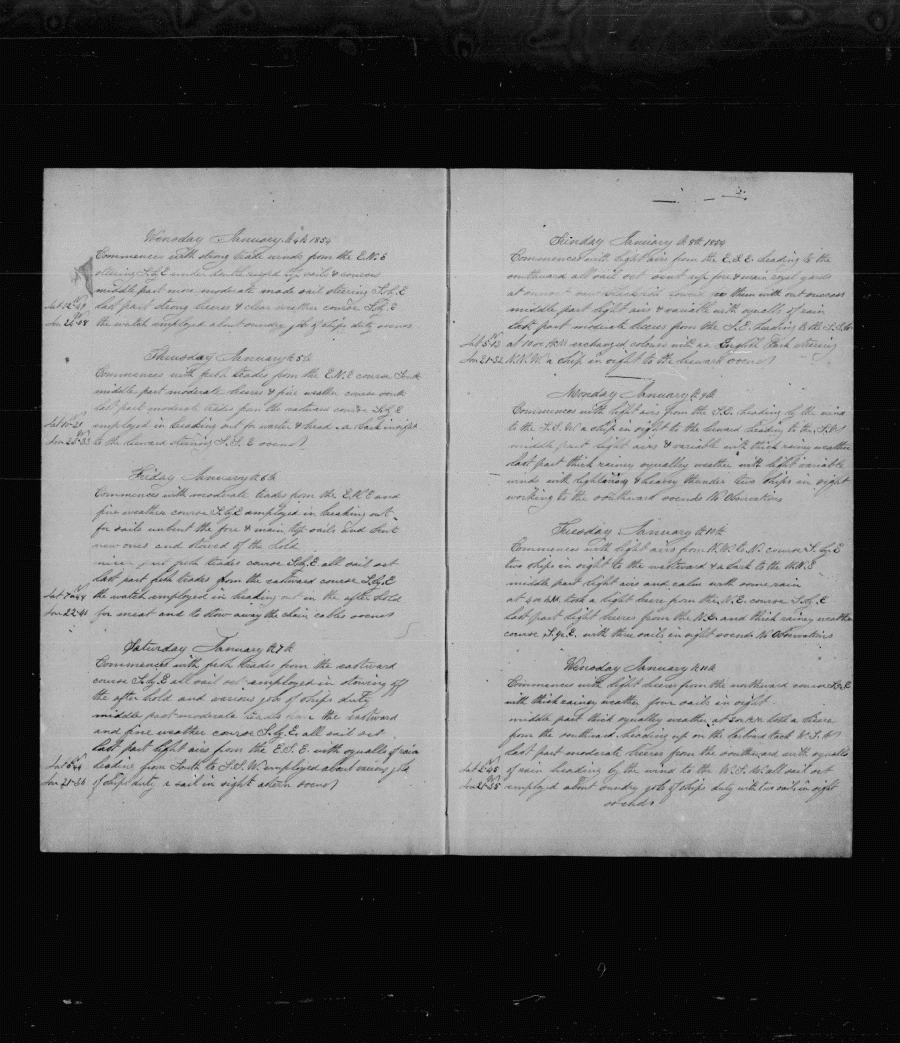 Wensday January th 4th 1854
Commences with strong trade winds from the E.N.E
stearing S.by.E under double reefd top sails & courses
middle part more moderate made sail stearing S.by.E
last part strong breeses & clear weather course S.by.E
the watch employed about sundry jobs of ships duty so ends
Thursday January th 5th
Commences with fresh trades from the E.N.E course South
middle part moderate breeses & fine weather course south
last part moderate trades from the eastward course S.by.E
employed in breaking out for water & bread a Bark in sight
to the leward stearing S.S.E so ends
Friday January th 6th
Commences with moderate trades from the E.N.E and
fine weather course S.by.E employed in breaking out
for sails unbent the fore & main top sails and bent
new ones and stowed of the hold
fresh trades course S.by.E all sail set
last part fresh trades from the eastward course S.by.E
the watch employed in breaking out in the after hold
for meat and to stow away the chain cables so ends
Saturday January th 7th
Commences with fresh trades from the eastward
course S.by.E all sail set employed in stowing off
the after hold and various jobs of ships duty
middle part moderate trades from the eastward
and fine weather course S.by.E all sail set
last part light airs from the E.S.E with squalls of rain
heading from South to S.S.W. employed about various jobs
of ships duty a sail in sight astern so ends
Sunday January th 8th 1854
Commences with light airs from the E.S.E heading to the
southward all sail set sent up fore & main royal yards
at sunset saw them with out success
middle part light airs & variable with squalls of rain
last part moderate breeses from the S.E. heading to the S.S.W
at 10 oc A.M exchanged colours with an English Bark stearing
N.N.W. a ship in sight to the leward so ends
Monday January th 9th
Commences with light airs from the S.E. heading by the wind
to the S.S.W a ship in sight to the leward heading to the S.W
middle part light airs & variable with thick rainey weather
last part thick rainey squalley weather with light variable
winds with lightning & heavy thunder two ships in sight
working to the southward so ends No Observations
Tuesday January th 10th
Commences with light airs from N.W. to N. course S.by.E
two ships in sight to the westward & a bark to the N.N.E
middle part light airs and calm with some rain
at 4 oc A.M. took a light breese from the N.E. course S.by.E
last part light breeses from the N.E. and thick rainey weather
course S.by.E. with three sails in sight so ends No Observations
Wensday January th 11th
Commences with light breese from the northward course S.by.E
with thick rainey weather four sails in sight
middle part thick squalley weather at 2 oc A.M. took a breese
from the southward heading up on the larboard tack W.S.W
last part moderate breeses from the southward with squalls
of rain heading by the wind to the W.S.W. all sail set
employed about sundry jobs of ships duty with two sails in sight
so ends